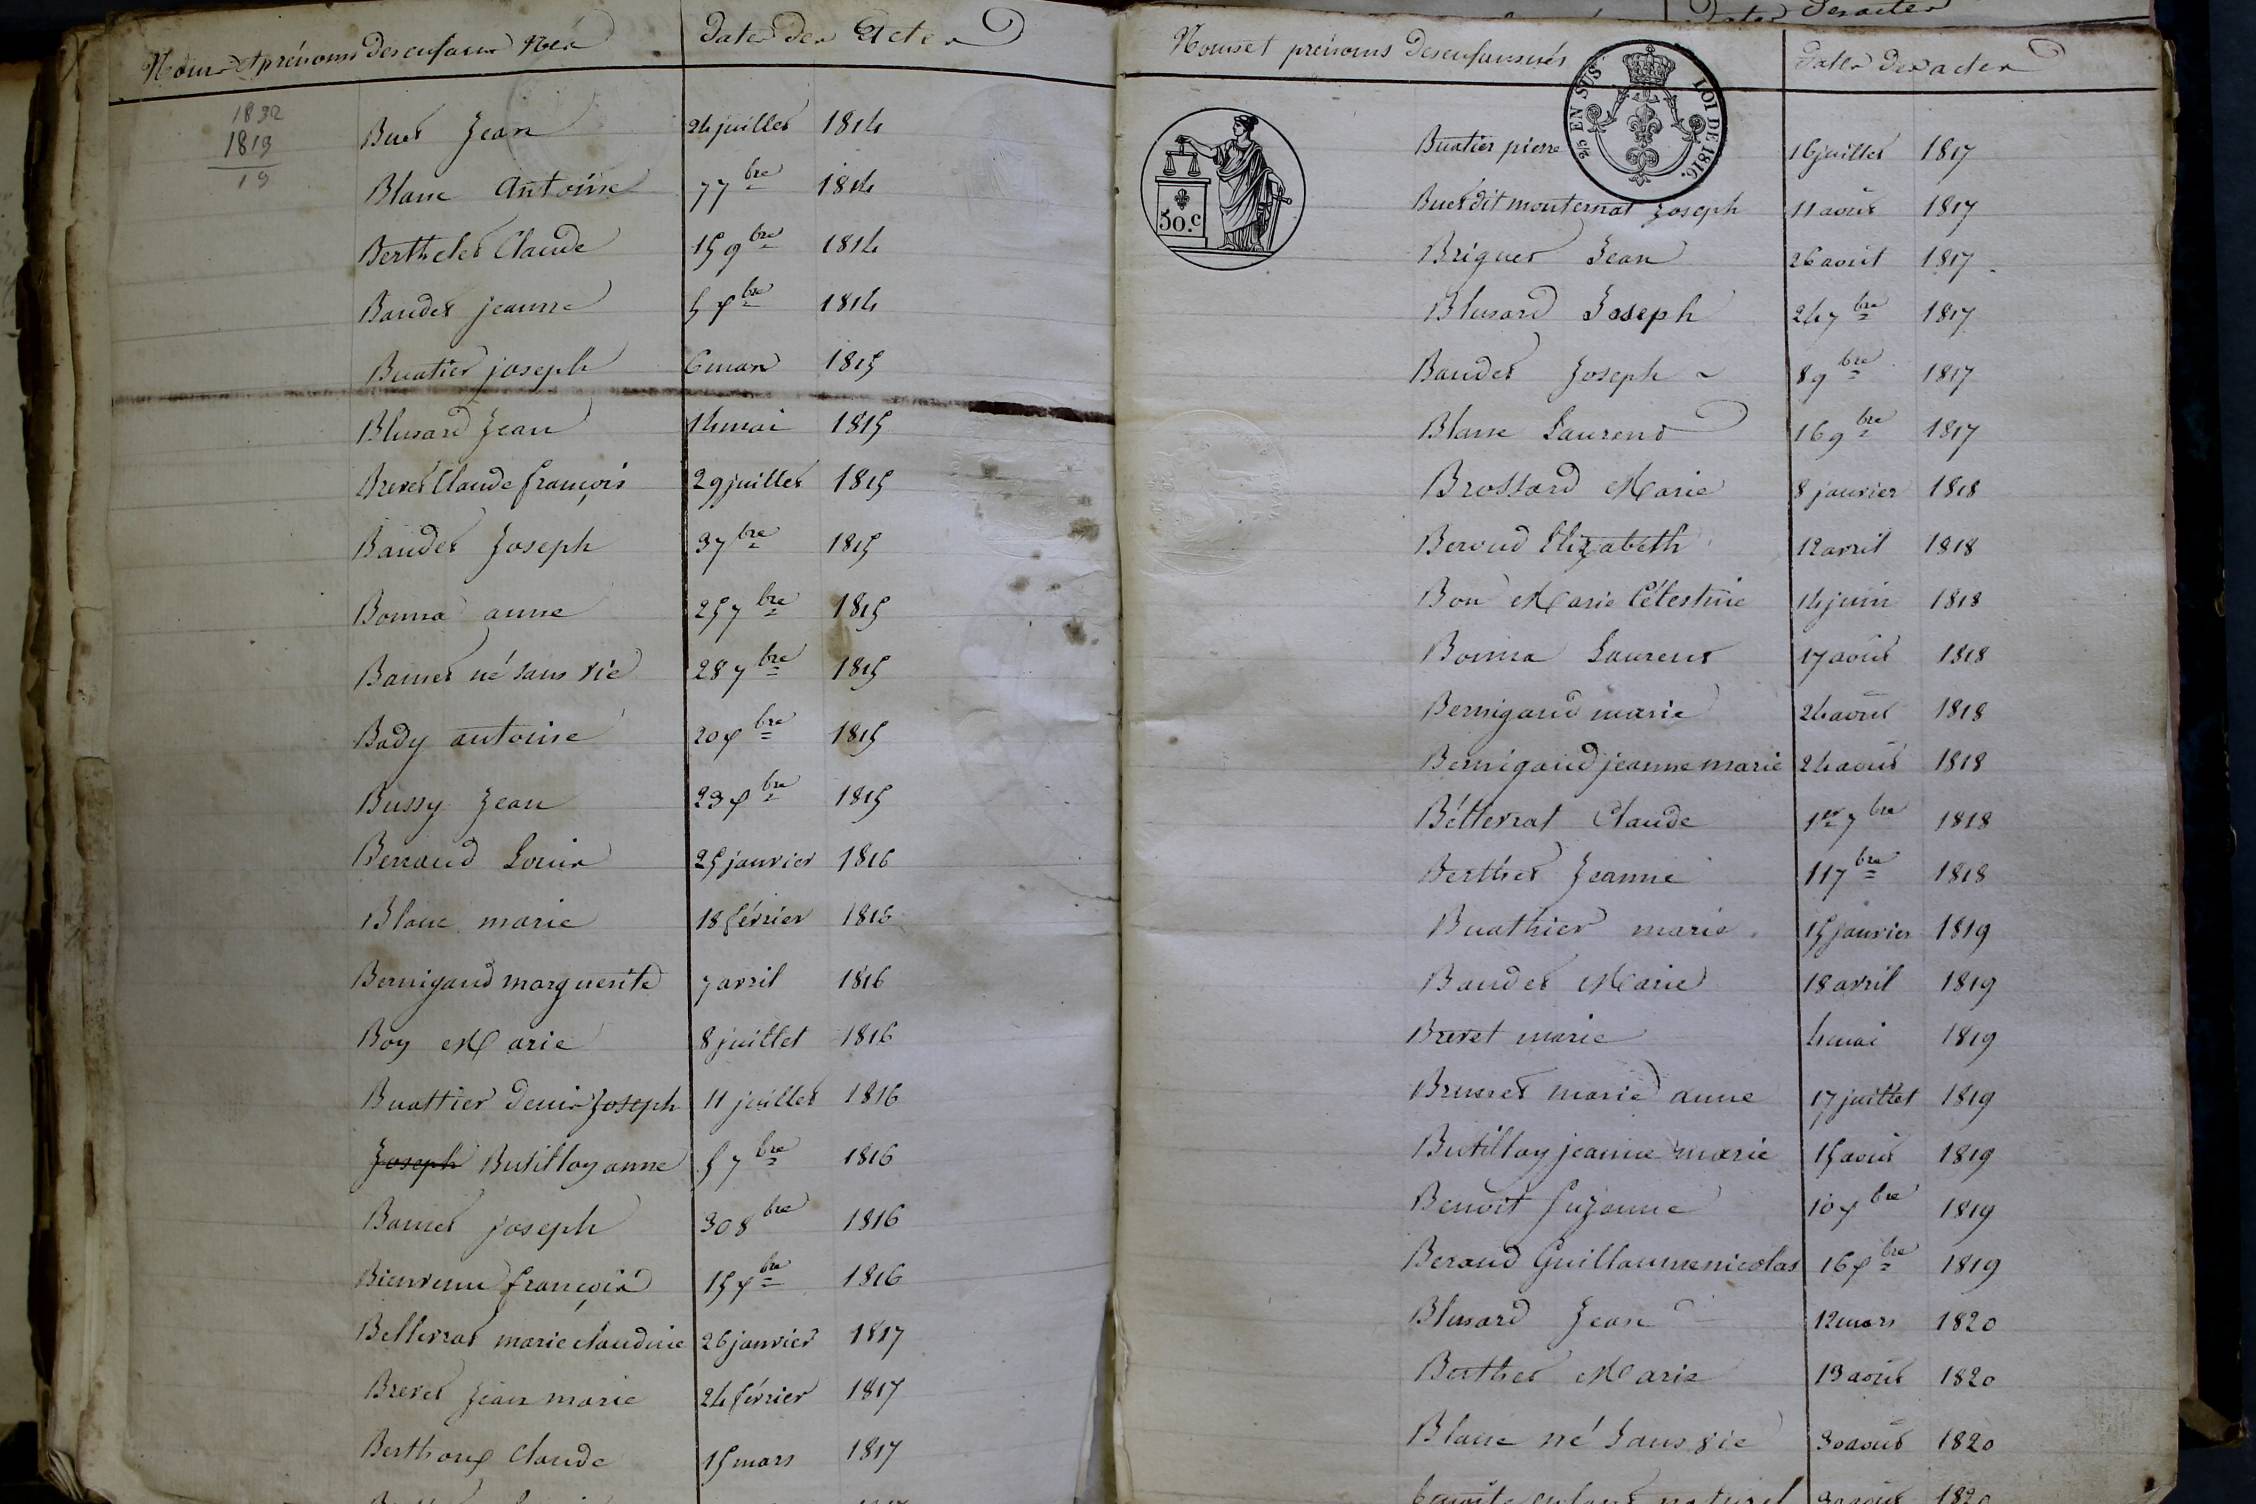 Noms et prénoms des enfans Nés Dates des Actes
1832
1813
19
Buet Jean 24 juillet 1814
Blanc Antoine 7 7bre 1814
Berthelet Claude 15 9bre 1814
Baudet jeanne 5 Xbre 1814
Buatier joseph 6 mars 1815
Blusard Jean 14 mai 1815
Brevet Claude françois 29 juillet 1815
Baudet Joseph 3 7bre 1815
Bonna anne 25 7bre 1815
Banet né sans vie 28 7bre 1815
Bady antoine 20 Xbre 1815
Bussy Jean 23 Xbre 1815
Berraud Louis 25 janvier 1816
Blanc marie 18 février 1816
Bernigaud marguerite 7 avril 1816
Boy Marie 8 juillet 1816
Buattier denis Joseph 11 juillet 1816
Joseph Butilloy anne 5 7bre 1816
Banet joseph 30 8bre 1816
Bienvenu françois 15 Xbre 1816
Betterrat marie claudine 26 janvier 1817
Brevet Jean marie 24 février 1817
Berthoux Claude 15 mars 1817
dates des actes
Noms et prénoms des enfans nés Dates des actes
2/5 EN SUS LOI DE 1816.
50.c
Buatier pierre 16 juillet 1817
Buet dit monternat Joseph 11 août 1817
Briguet Jean 26 août 1817
Blusard Joseph 24 7bre 1817
Baudet Joseph 8 9bre 1817
Blanc Laurent 16 9bre 1817
Brossard Marie 8 janvier 1818
Beroud Elizabeth 12 avril 1818
Bon Marie Célestine 14 juin 1818
Bonna Laurent 17 août 1818
Bernigaud marie 24 août 1818
Bernigaud jeanne marie 24 août 1818
Bétterrat Claude 1er 7bre 1818
Berthet Jeanne 11 7bre 1818
Buathier marie 15 janvier 1819
Baudet Marie 18 avril 1819
Brevet marie 4 mai 1819
Brunet marie anne 17 juillet 1819
Butilloy jeanne marie 15 août 1819
Benoit Suzanne 10 Xbre 1819
Beraud Guillaume nicolas 16 Xbre 1819
Blusard Jean 12 mars 1820
Berthet Marie 13 août 1820
Blanc né sans vie 30 août 1820
enfant naturel 30 août 1820